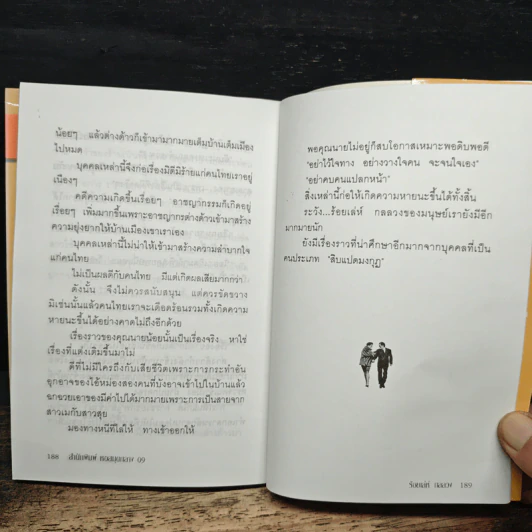 น้อยๆ แล้วต่างด้าวก็เข้ามามากมายเต็มบ้านเต็มเมือง
ไปหมด
บุคคลเหล่านี้จึงก่อเรื่องมิดีมิร้ายแก่คนไทยเราอยู่
เนืองๆ
คดีความเกิดขึ้นเรื่อยๆ อาชญากรรมก็เกิดอยู่
เรื่อยๆ เพิ่มมากขึ้นเพราะอาชญากรต่างด้าวเข้ามาสร้าง
ความยุ่งยากให้บ้านเมืองเขาเราเอง
บุคคลเหล่านี้ไม่น่าให้เข้ามาสร้างความลำบากใจ
แก่คนไทย
ไม่เป็นผลดีกับคนไทย มีแต่เกิดผลเสียมากกว่า
ดังนั้น จึงไม่ควรสนับสนุน แต่ควรขัดขวาง
มิเช่นนั้นแล้วคนไทยเราจะเดือดร้อนรวมทั้งเกิดความ
หายนะขึ้นได้อย่างคาดไม่ถึงอีกด้วย
เรื่องราวของคุณนายน้อยนั้นเป็นเรื่องจริง หาใช่
เรื่องที่แต่งเติมขึ้นมาไม่
ดีที่ไม่มีใครถึงกับเสียชีวิตเพราะการกระทำอัน
อุกอาจของไอ้หม่องสองคนที่บังอาจเข้าไปในบ้านแล้ว
ฉกฉวยเอาของมีค่าไปได้มากมายเพราะการเป็นสายจาก
สาวเมกับสาวสุย
มองทางหนีทีไล่ให้ ทางเข้าออกให้
188 สำนักพิมพ์ 09
พอคุณนายไม่อยู่ก็สบโอกาสเหมาะพอดิบพอดี
"อย่าไว้ใจทาง อย่าวางใจคน จะจนใจเอง"
"อย่าคบคนแปลกหน้า"
สิ่งเหล่านี้ก่อให้เกิดความหายนะขึ้นได้ทั้งสิ้น
ระวัง...ร้อยเล่ห์ กลลวงของมนุษย์เรายังมีอีก
มากมายนัก
ยังมีเรื่องราวที่น่าศึกษาอีกมากจากบุคคลที่เป็น
คนประเภท "สิบแปดมงกุฎ"
ร้อยเล่ห์ กลลวง 189